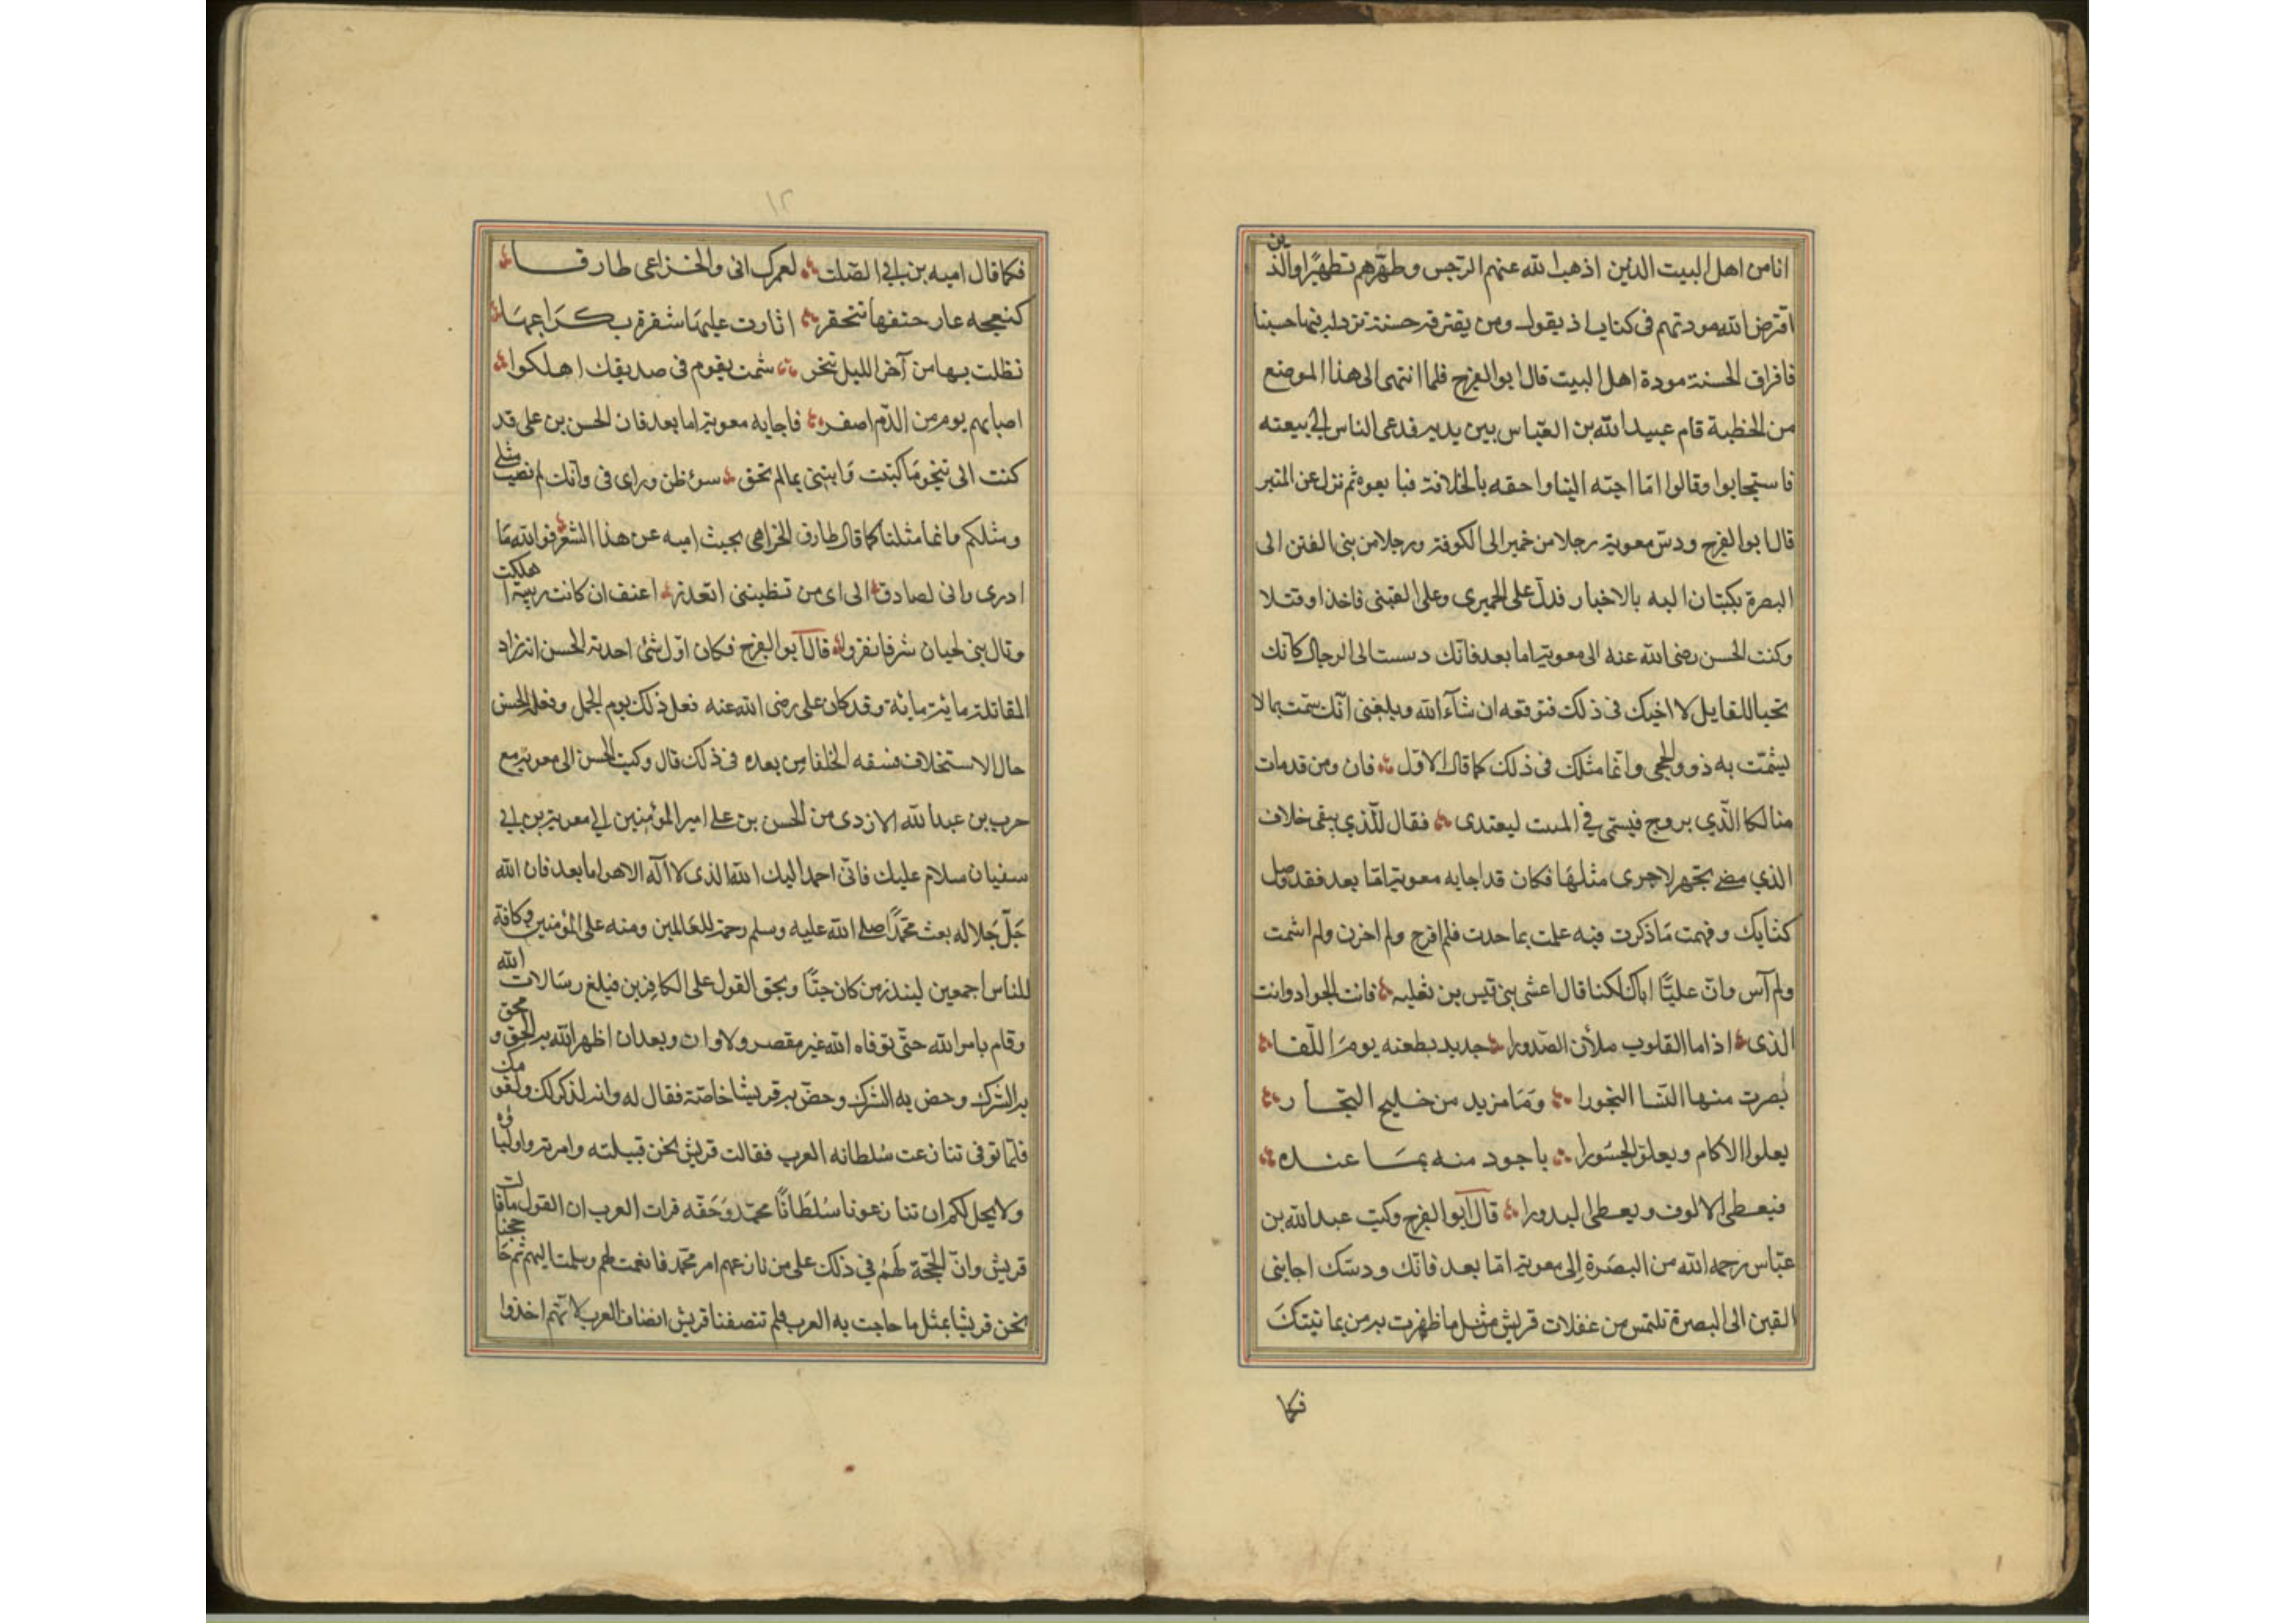 انا من اهل البيت الذين اذهب الله عنهم الرجس وطهّرهم تطهيرًا والذين
افترض الله مودتهم فى كتابه اذ يقول ومن يقترف حسنة نزد له فيها حسنا
فاقراف الحسنة مودة اهل البيت قال ابو الفرج فلما انتهى الى هذا الموضع
من الخطبة قام عبيد الله بن العبّاس بين يديه فدعى الناس الى بيعته
فاستجابوا وقالوا امّا احبّه الينا واحقه بالخلافة فبايعوه ثم نزل عن المنبر
قال ابو الفرج ودسّ معوية رجلا من حمير الى الكوفة ورجلا من بنى القين الى
البصرة يكتبان اليه بالاخبار فدلّ على الحميرى وعلى القينى فاخذا وقتلا
وكتب الحسن رضى الله عنه الى معوية اما بعد فانّك دسست الى الرجال كانك
تحب اللقا يل لا اخيك فى ذلك فتوقعه ان شآء الله وبلغنى انّك شمت بما لا
يشمّت به ذوو الحجى وانّما مثلك فى ذلك كما قال الاوّل فان ومن قد مات
منا لكا الّذي يروح فيمسي في المبيت ليغتدى فقال للّذي يبقى خلاف
الذي مضى تجهز لاخرى مثلها فكان قد اجابه معوية امّا بعد فقد وصل
كتابك وفهمت ما ذكرت فيه علمت بما حدث فلم افرح ولم احزن ولم اشمت
ولم آس وانّ عليًّا اباك لكنا قال اعشى بنى قيس بن ثعلبه فانت الجواد وانت
الذى اذا ما القلوب ملأن الصّدورا جدير بطعنه يوم اللّقا
بصرت منها النسا النحورا وما مزيد من خليج البحار
يعلوا الاكام ويعلو الجسورا باجود منه بما عنده
فيعطى الالوف ويعطى البدورا قال ابو الفرج وكتب عبد الله بن
عبّاس رحمه الله من البصرة إلى معوية امّا بعد فانّك ودسّك اجابنى
القين الى البصرة تلتمس من غفلات قريش مثل ما ظهرت به من يمانيتك
فكا
١٢
فكما قال اميه بن ابي الصّلت لعمرك انى والخزاعى طارقا
كنعجه عار حتفها تتحفر اثارت عليها شفرة بكراعها
فظلت بها من آخر الليل تنحر شمت بقوم فى صديقك اهلكوا
اصابهم يوم من الدّم اصفر فاجابه معوية اما بعد فان الحسن بن على قد
كتب الى بنحو ما كتبت وانبنى بما لم تحق سوء ظن وراى فى وانك لم تصب مثلي
ومثلكم وانما مثلنا كما قال طارق الخزاعى يجيب اميه عن هذا الشعر فوالله ما
ادرى وانى لصادق الى اى من تظننى اتعذر اعنف ان كانت زبينة اهلكت
وقال بنى لحيان شر فانفروا قال ابو الفرج فكان اوّل شئ احدثه الحسن انه زاد
المقاتلة مائة مائة وقد كان على رضى الله عنه فعل ذلك يوم الجمل وفعله الحسن
حال الاستخلاف فسنه الخلفا من بعده فى ذلك قال وكتب الحسن الى معوية مع
حرب بن عبد الله الازدى من الحسن بن على امير المؤمنين إلى معوية بن ابي
سفيان سلام عليك فانى احمد اليك الله الذى لا اله الا هو اما بعد فان الله
جلّ جلاله بعث محمّدًا صلى الله عليه وسلم رحمة للعالمين ومنه على المؤمنين وكافة
للناس اجمعين لينذر من كان حيًّا ويحق القول على الكافرين فبلغ رسالات الله
وقام بامر الله حتّى توفاه الله غير مقصر ولا وان وبعد ان اظهر الله به الحق ومحق
به الشرك وخص به الشرك وخصّ به قريشا خاصّة فقال له وانه لذكر لك ولقومك
فلمّا توفى تنازعت سلطانه العرب فقالت قريش نحن قبيلته واسرته واولياؤه
ولا يحل لكم ان تنازعونا سلطانًا محمّد وحقّه فرات العرب ان القول ما قالت
قريش وانّ الحجّة لهم في ذلك على من نازعهم امر محمّد فانعمت لهم وسلمت اليهم ثم حاججنا
نحن قريشا بمثل ما حاجت به العرب فلم تنصفنا قريش انصاف العرب لا انّهم اخذوا